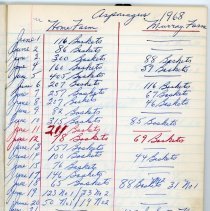 Asparagus 1968
Home Farm Murray Farm
June 1 116 Baskets
June 2 86 Baskets
June 3 360 Baskets 88 Baskets
June 4 161 Baskets 39 Baskets
June 5 405 Baskets
June 6 217 Baskets 117 Baskets
June 7 Baskets 67 Baskets
June 8 217 Baskets 96 Baskets
June 9 88 Baskets
June 10 315 Baskets 85 Baskets
June 11 211 Baskets
June 12 98 Baskets 69 Baskets
June 13 157 Baskets
June 14 100 Baskets 99 Baskets
June 15 76 Baskets
June 17 146 Baskets
June 18 65 Baskets 88 Baskets 31 No 1
June 19 123 No 1 73 No 2
June 20 50 No 1 19 No 2